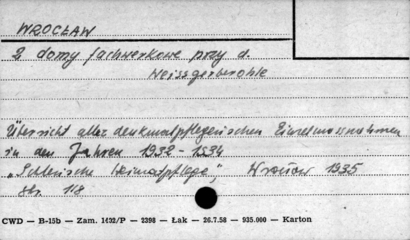 WROCŁAW
2 domy fachwerkowe przy d.
Weissgerberohle
Übersicht aller denkmalpflegerischen Einzelmassnahmen
in den Jahren 1932 - 1934
„Schlesische Heimatpflege", Wrocław 1935
str. 118
CWD — B-15b — Zam. 1422/P — 2398 — Łak — 26.7.58 — 935.000 — Karton